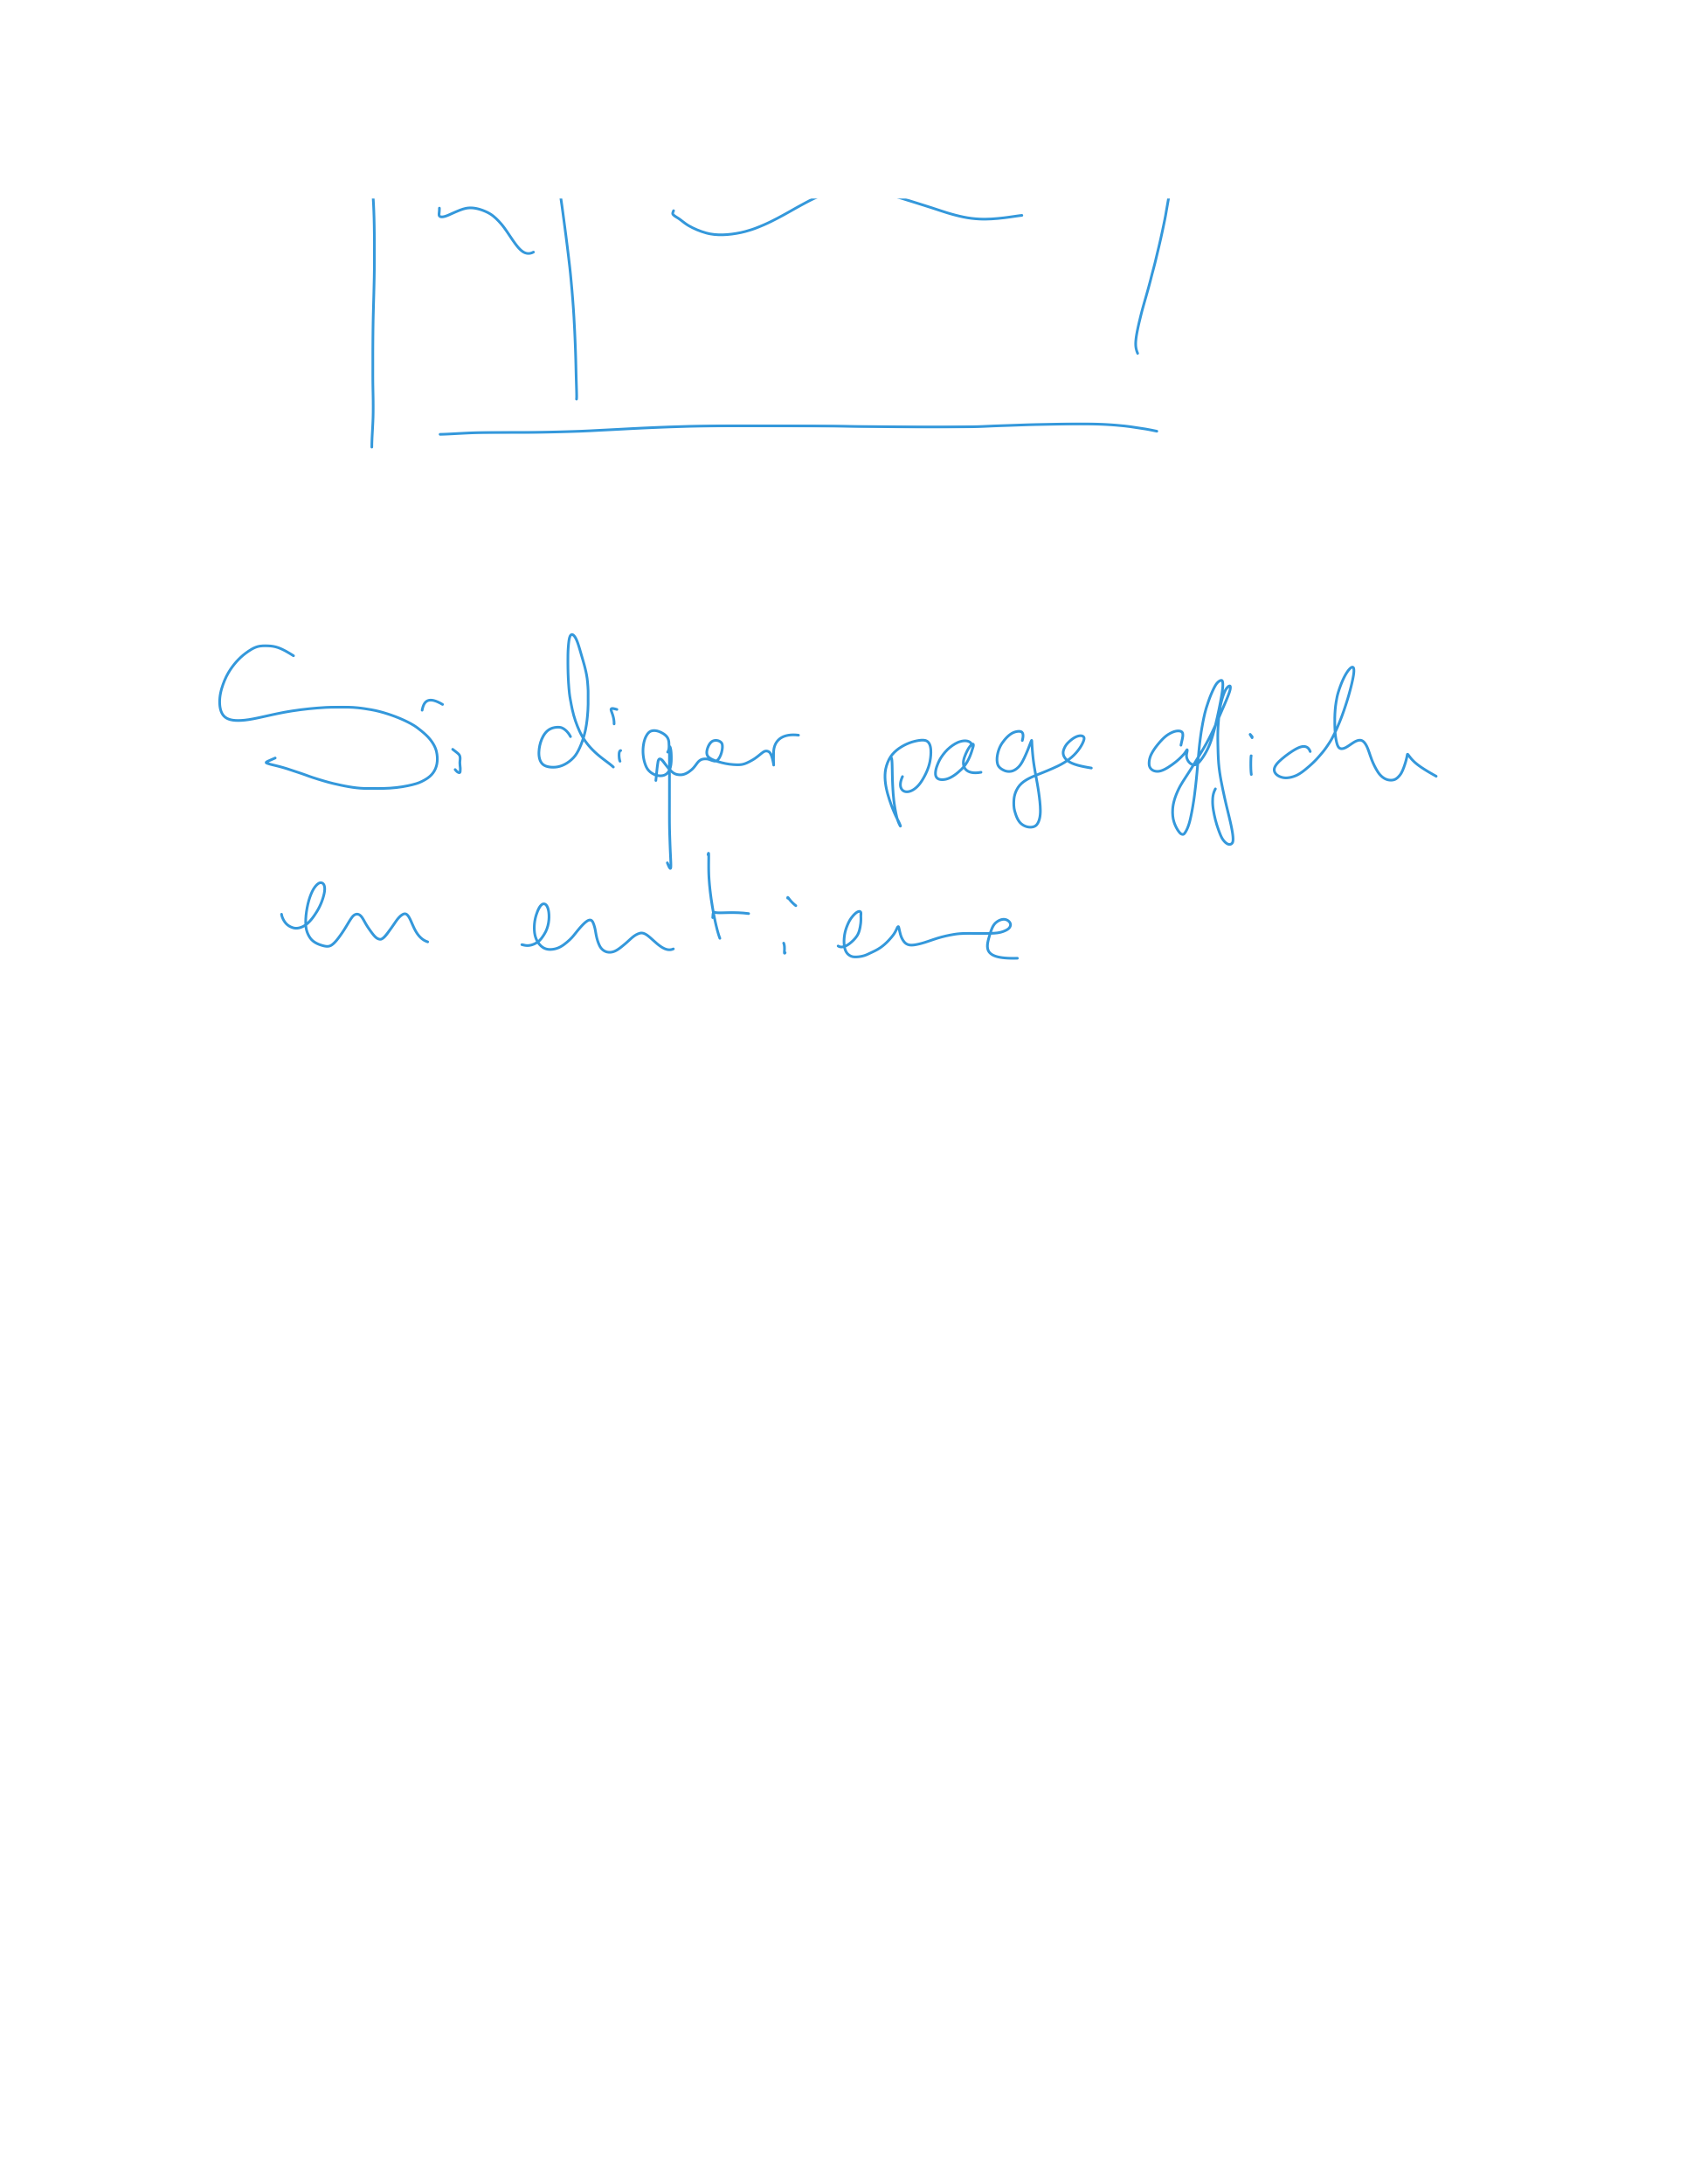 Si diper page affich
en entiere